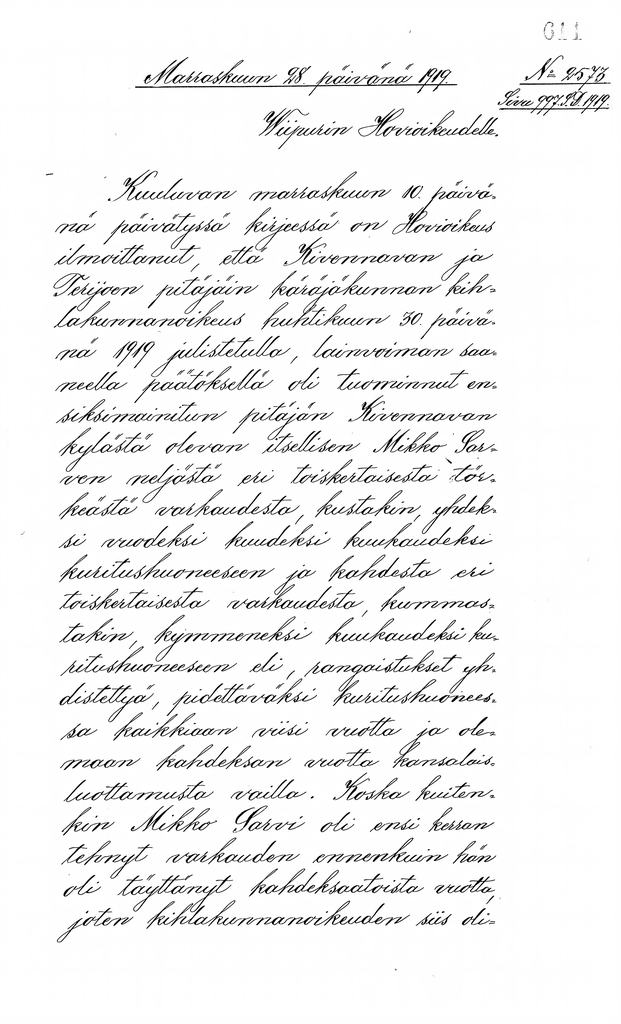 611
Marraskuun 28. päivänä 1919.
No 2573
Sivu 997. S.D. 1919.
Wiipurin Hovioikeudelle.
Kuuluvan marraskuun 10. päivä=
nä päivätyssä kirjeessä on Hovioikeus
ilmoittanut, että Kivennavan ja
Terijoen pitäjäin käräjäkunnan kih=
lakunnanoikeus huhtikuun 30. päivä=
nä 1919 julistetulla, lainvoiman saa=
neella päätöksellä oli tuominnut en=
siksimainitun pitäjän Kivennavan
kylästä olevan itsellisen Mikko Sar=
ven neljästä eri toiskertaisesta tör=
keästä varkaudesta, kustakin, yhdek=
si vuodeksi kuudeksi kuukaudeksi
kuritushuoneeseen ja kahdesta eri
toiskertaisesta varkaudesta, kummas=
takin, kymmeneksi kuukaudeksi ku=
ritushuoneeseen eli, rangaistukset yh=
distettyä, pidettäväksi kuritushuonees=
sa kaikkiaan viisi vuotta ja ole=
maan kahdeksan vuotta kansalais=
luottamusta vailla. Koska kuiten=
kin Mikko Sarvi oli ensi kerran
tehnyt varkauden ennenkuin hän
oli täyttänyt kahdeksaatoista vuotta,
joten kihlakunnanoikeuden siis oli=